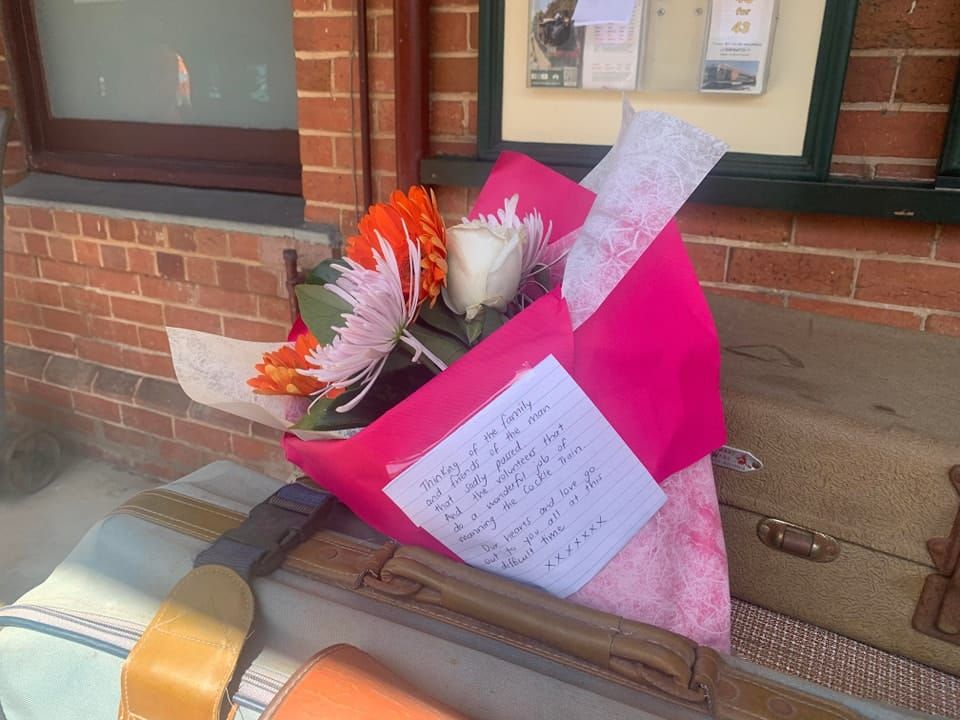 for
43
Thinking of the family
and friends of the man
that sadly passed...
And the volunteers that
do a wonderful job of
manning the Cockle Train.
Our hearts and love go
out to you all at this
difficult time
xxxxxxx